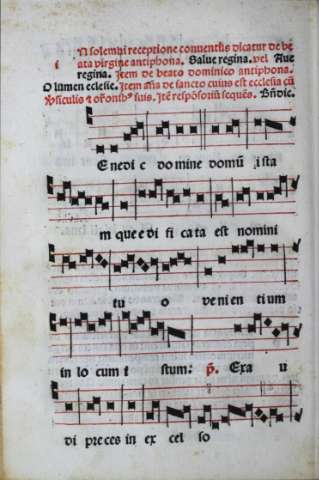 In solemni receptione conventus dicatur de be
ata virgine antiphona. Salue regina. vel Aue
regina. Item de beato dominico antiphona.
O lumen ecclesie. Item aña de sancto cuius est ecclesia cū
℣siculis ⁊ orōnibꝰ suis. Itē respōsoriū sequēs. Bn̄dic.
E nedi c domine domū ista
m que e di fi ca ta est nomini
tu o ve ni en ti um
in lo cum i stum: p̄. Exa u
di pre ces in ex cel so